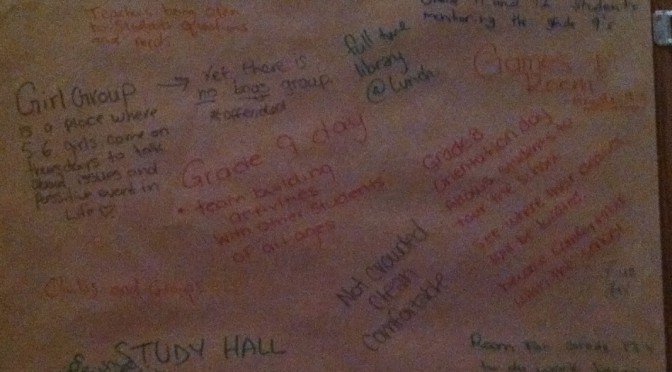 Teachers being open
to students questions
and needs
Grade 11 and 12 students
monitoring the grade 9's
full time
library
@ Lunch
Games
Room
Girl Group
is a place where
5 6 girls come on
thursdays to talk
about issues and
positive event in
Life ♡
→ Yet, there is
no boys group.
#offended
Grade 9 day
• team building
activities
with other students
of all ages
Grade 8
Orientation day
allows students to
tour the school
see where their classes
will be located
become comfortable
within the school
Clubs and Groups
Not crowded
Clean
Comfortable
STUDY HALL
Room for
to do work